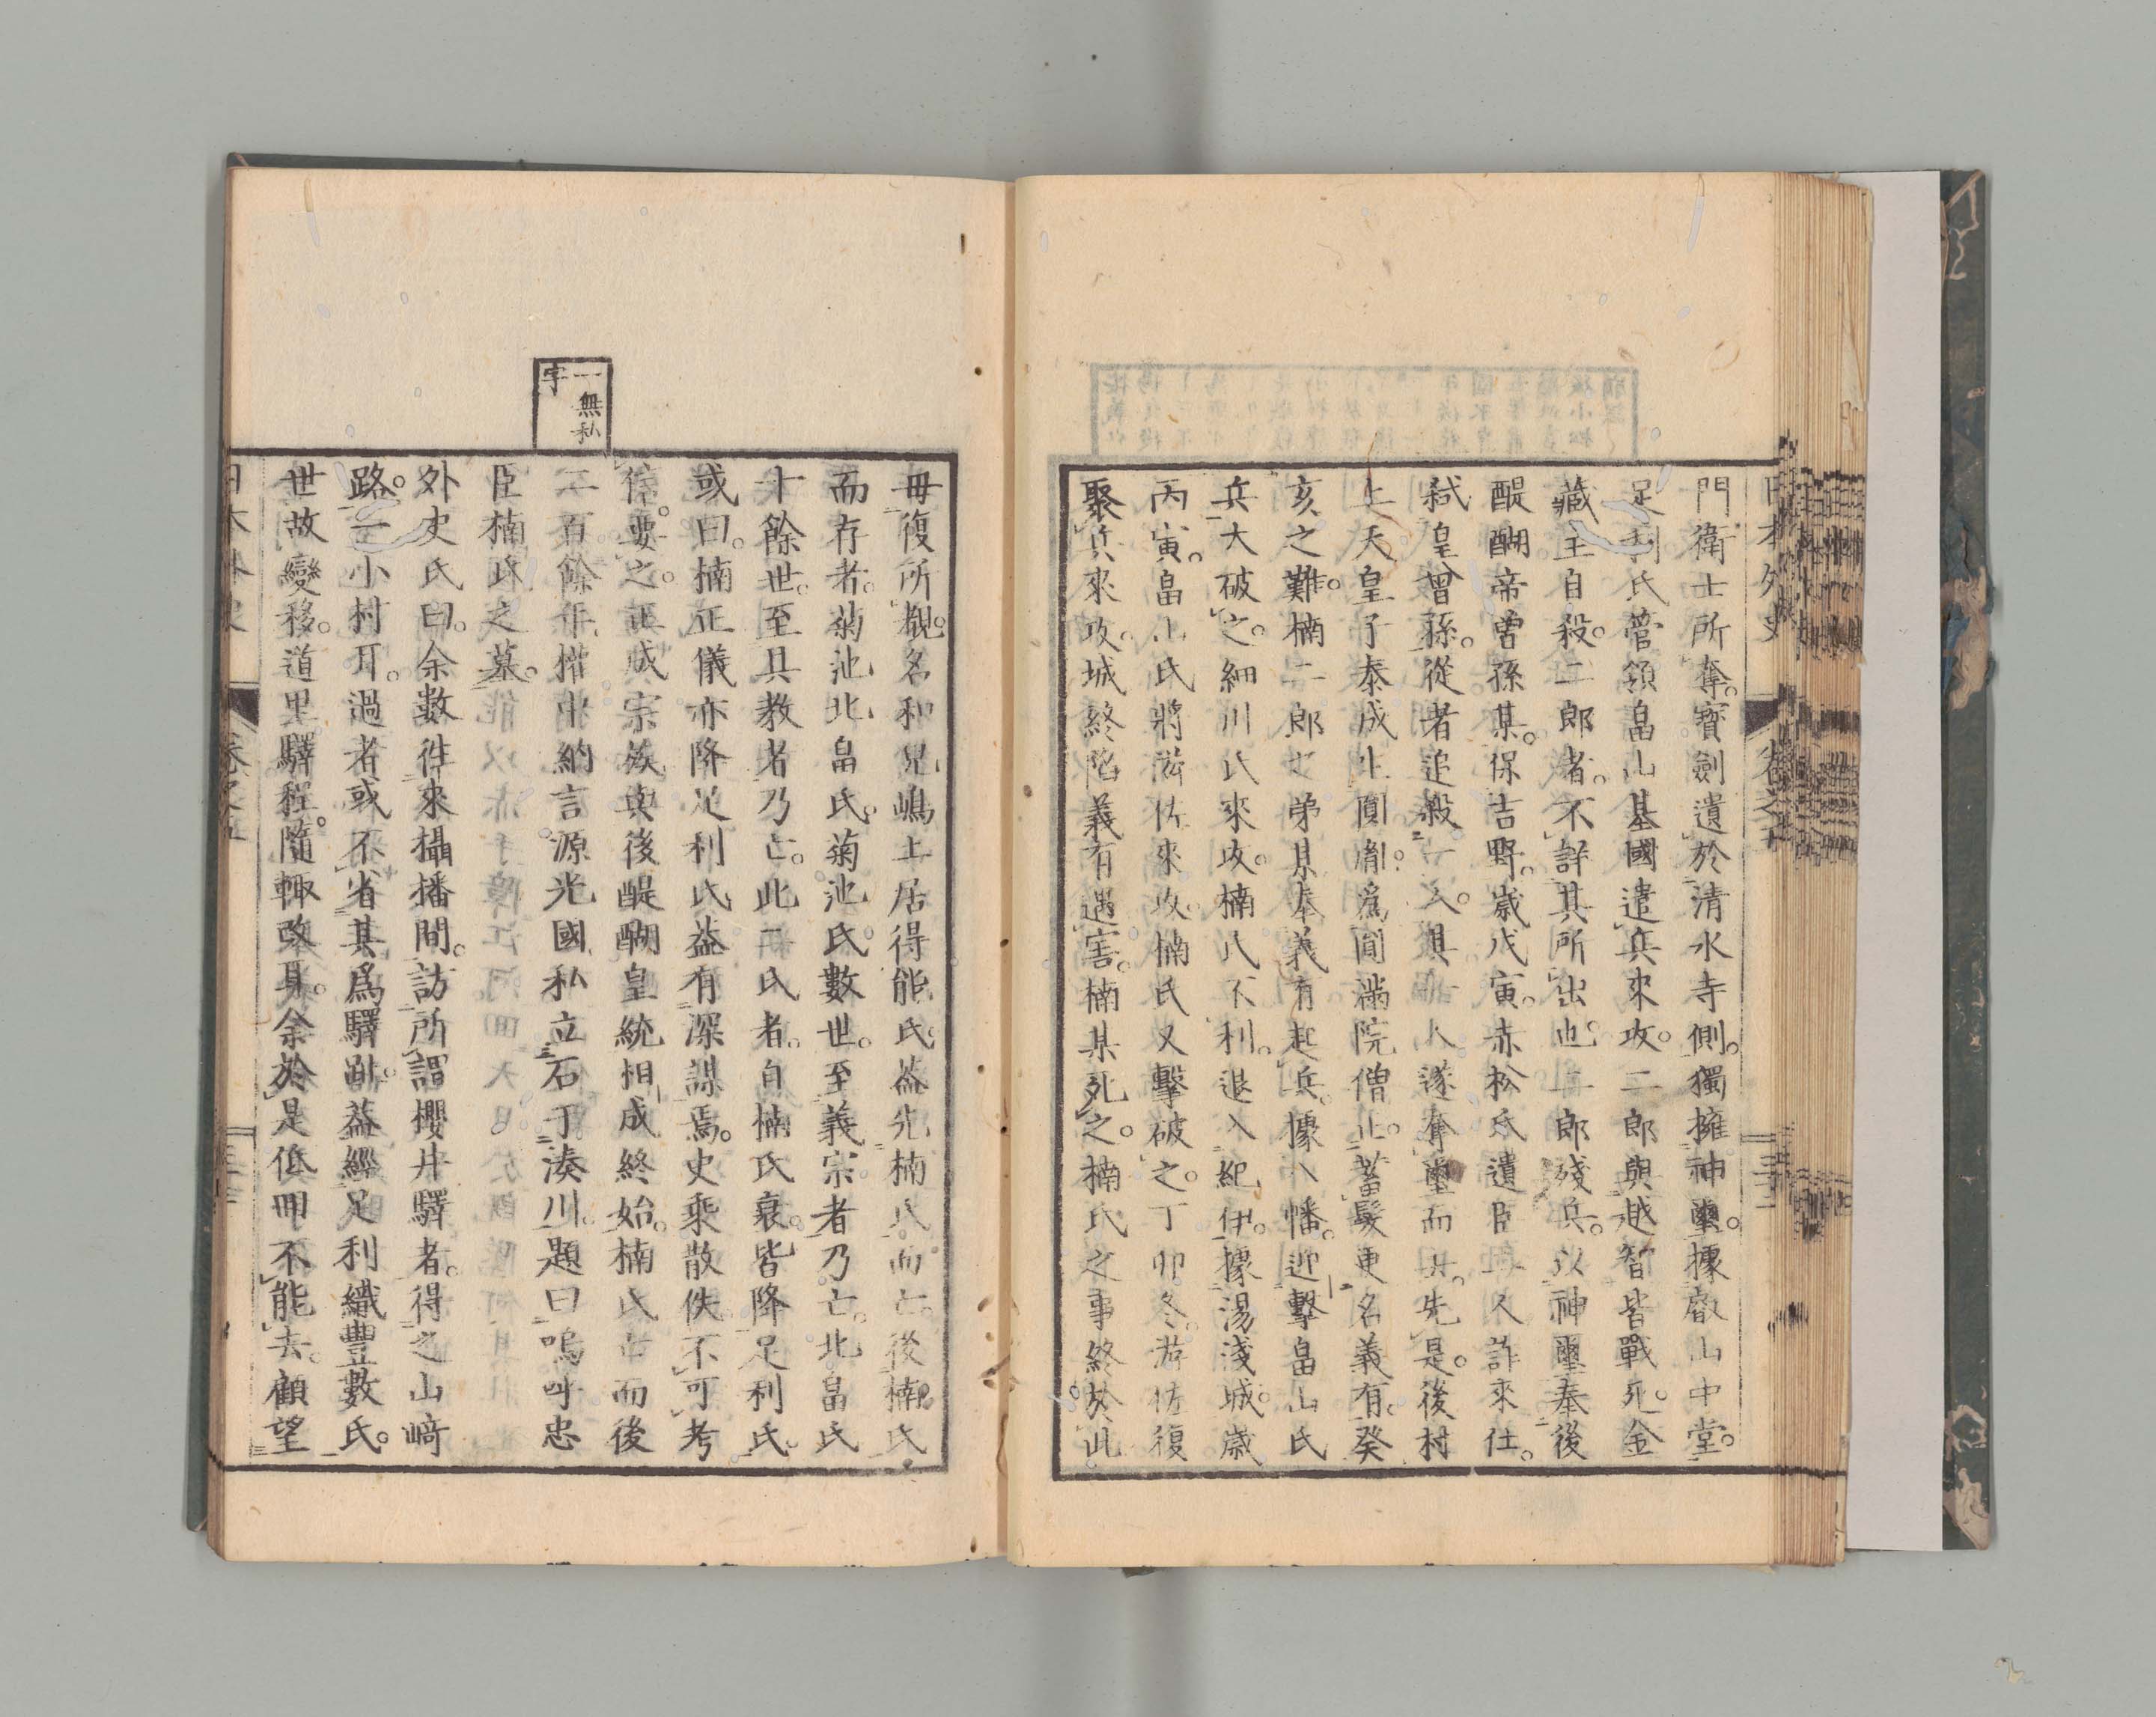 門衛士所奪。寶劍遺於清水寺側。獨擁神璽。據叡山中堂。
足利氏管領畠山基國遣兵來攻。二郎與越智皆戰死。金
藏主自殺。二郎者。不詳其所出也。二郎殘兵。以神璽奉後
醍醐帝曾孫某。保吉野。歲戊寅。赤松氏遺臣
詐來仕。
弑皇曾孫。從者追殺一人。其一人遂奪璽而去。先是。後村
上天皇子泰成生圓胤。爲圓滿院僧正。蓄髮更名義有。癸
亥之難。楠二郎之弟某奉義有起兵。據八幡。迎擊畠山氏
兵大破之。細川氏來攻。楠氏不利。退入紀伊。據湯淺城。歲
丙寅。畠山氏將游佐來攻。楠氏又擊破之。丁卯冬。游佐復
聚兵來攻。城終陷。義有遇害。楠某死之。楠氏之事終於此
日本外史
卷之五
一無私
字
毋復所覩。名和兒嶋土居得能氏。葢先楠氏而亡。後楠氏
而存者。菊池北畠氏。菊池氏數世。至義宗者乃亡。北畠氏
十餘世。至具教者乃亡。此二氏者。自楠氏衰。皆降足利氏
或曰。楠正儀亦降足利氏。葢有深謀焉。史乘散佚。不可考
信。要之。正成宗族與後醍醐皇統相成終始。楠氏亡而後
二百餘年。權中納言源光國私立石于湊川。題曰嗚呼忠
臣楠氏之墓。
外史氏曰。余數往來攝播間。訪所謂櫻井驛者。得之山崎
路。一小村耳。過者或不省其爲驛趾。葢經足利織豐數氏。
世故變移。道里驛程。隨輒改易。余於是低回不能去。顧望
日本外史
卷之五